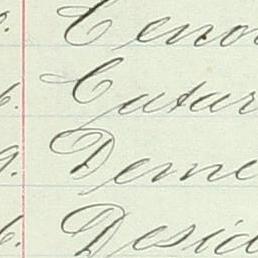 Cenov
6. Catar
9. Deme
6. Desid